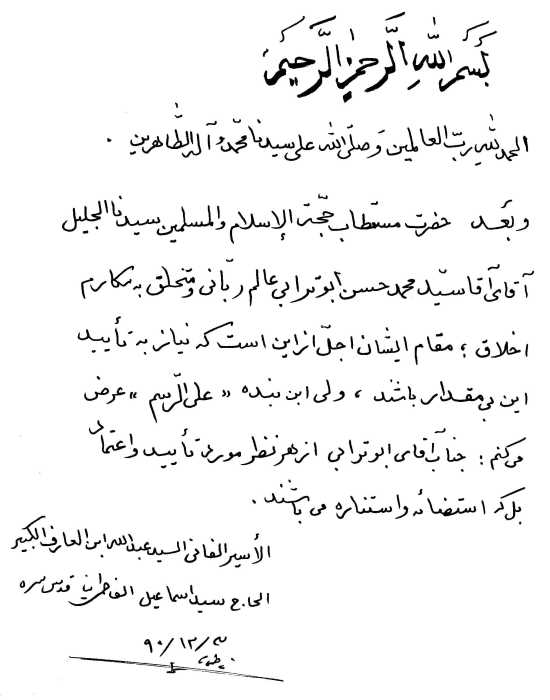 بسم الله الرحمن الرحیم
الحمد لله رب العالمین و صلّی الله علی سیدنا محمّد و آله الطّاهرین .
و بعد حضرت مستطاب حجّة الإسلام والمسلمین سیدنا الجلیل
آقای آقا سیّد محمد حسن ابوترابی عالم ربّانی و متخلق به مکارم
اخلاق ؛ مقام ایشان اجلّ از این است که نیاز به تأیید
این بی مقدار باشند ، ولی این بنده « علی الرّسم » عرض
می کنم : جناب آقای ابوترابی از هر نظر مورد تأیید و اعتماد
بل که استضائه و استناره می باشند .
الأسیر الفانی السید عبدالله ابن العارف الکبیر
الحاج سید اسماعیل الفاطمی قدس سره
۹۰/۱۲/۳